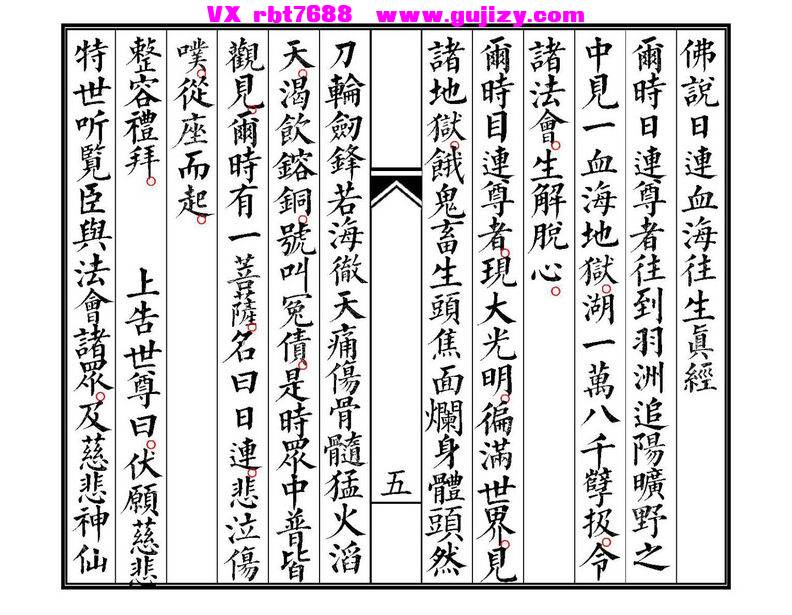 VX rbt7688 www.gujizy.com
佛說日連血海往生眞經
爾時日連尊者往到羽洲追陽曠野之
中見一血海地獄。湖一萬八千孽扱。令
諸法會。生解脫心。
爾時目連尊者。現大光明。徧滿世界。見
諸地獄。餓鬼畜生頭焦面爛身體頭然
五
刀輪劒鋒若海徹天痛傷骨髓猛火滔
天。渴飲鎔銅。號叫冤債。是時眾中普皆
觀見。爾時有一菩薩。名曰日連。悲泣傷
噗。從座而起。
整容禮拜。 上告世尊曰。伏願慈悲
特世听覽臣與法會諸眾。及慈悲神仙